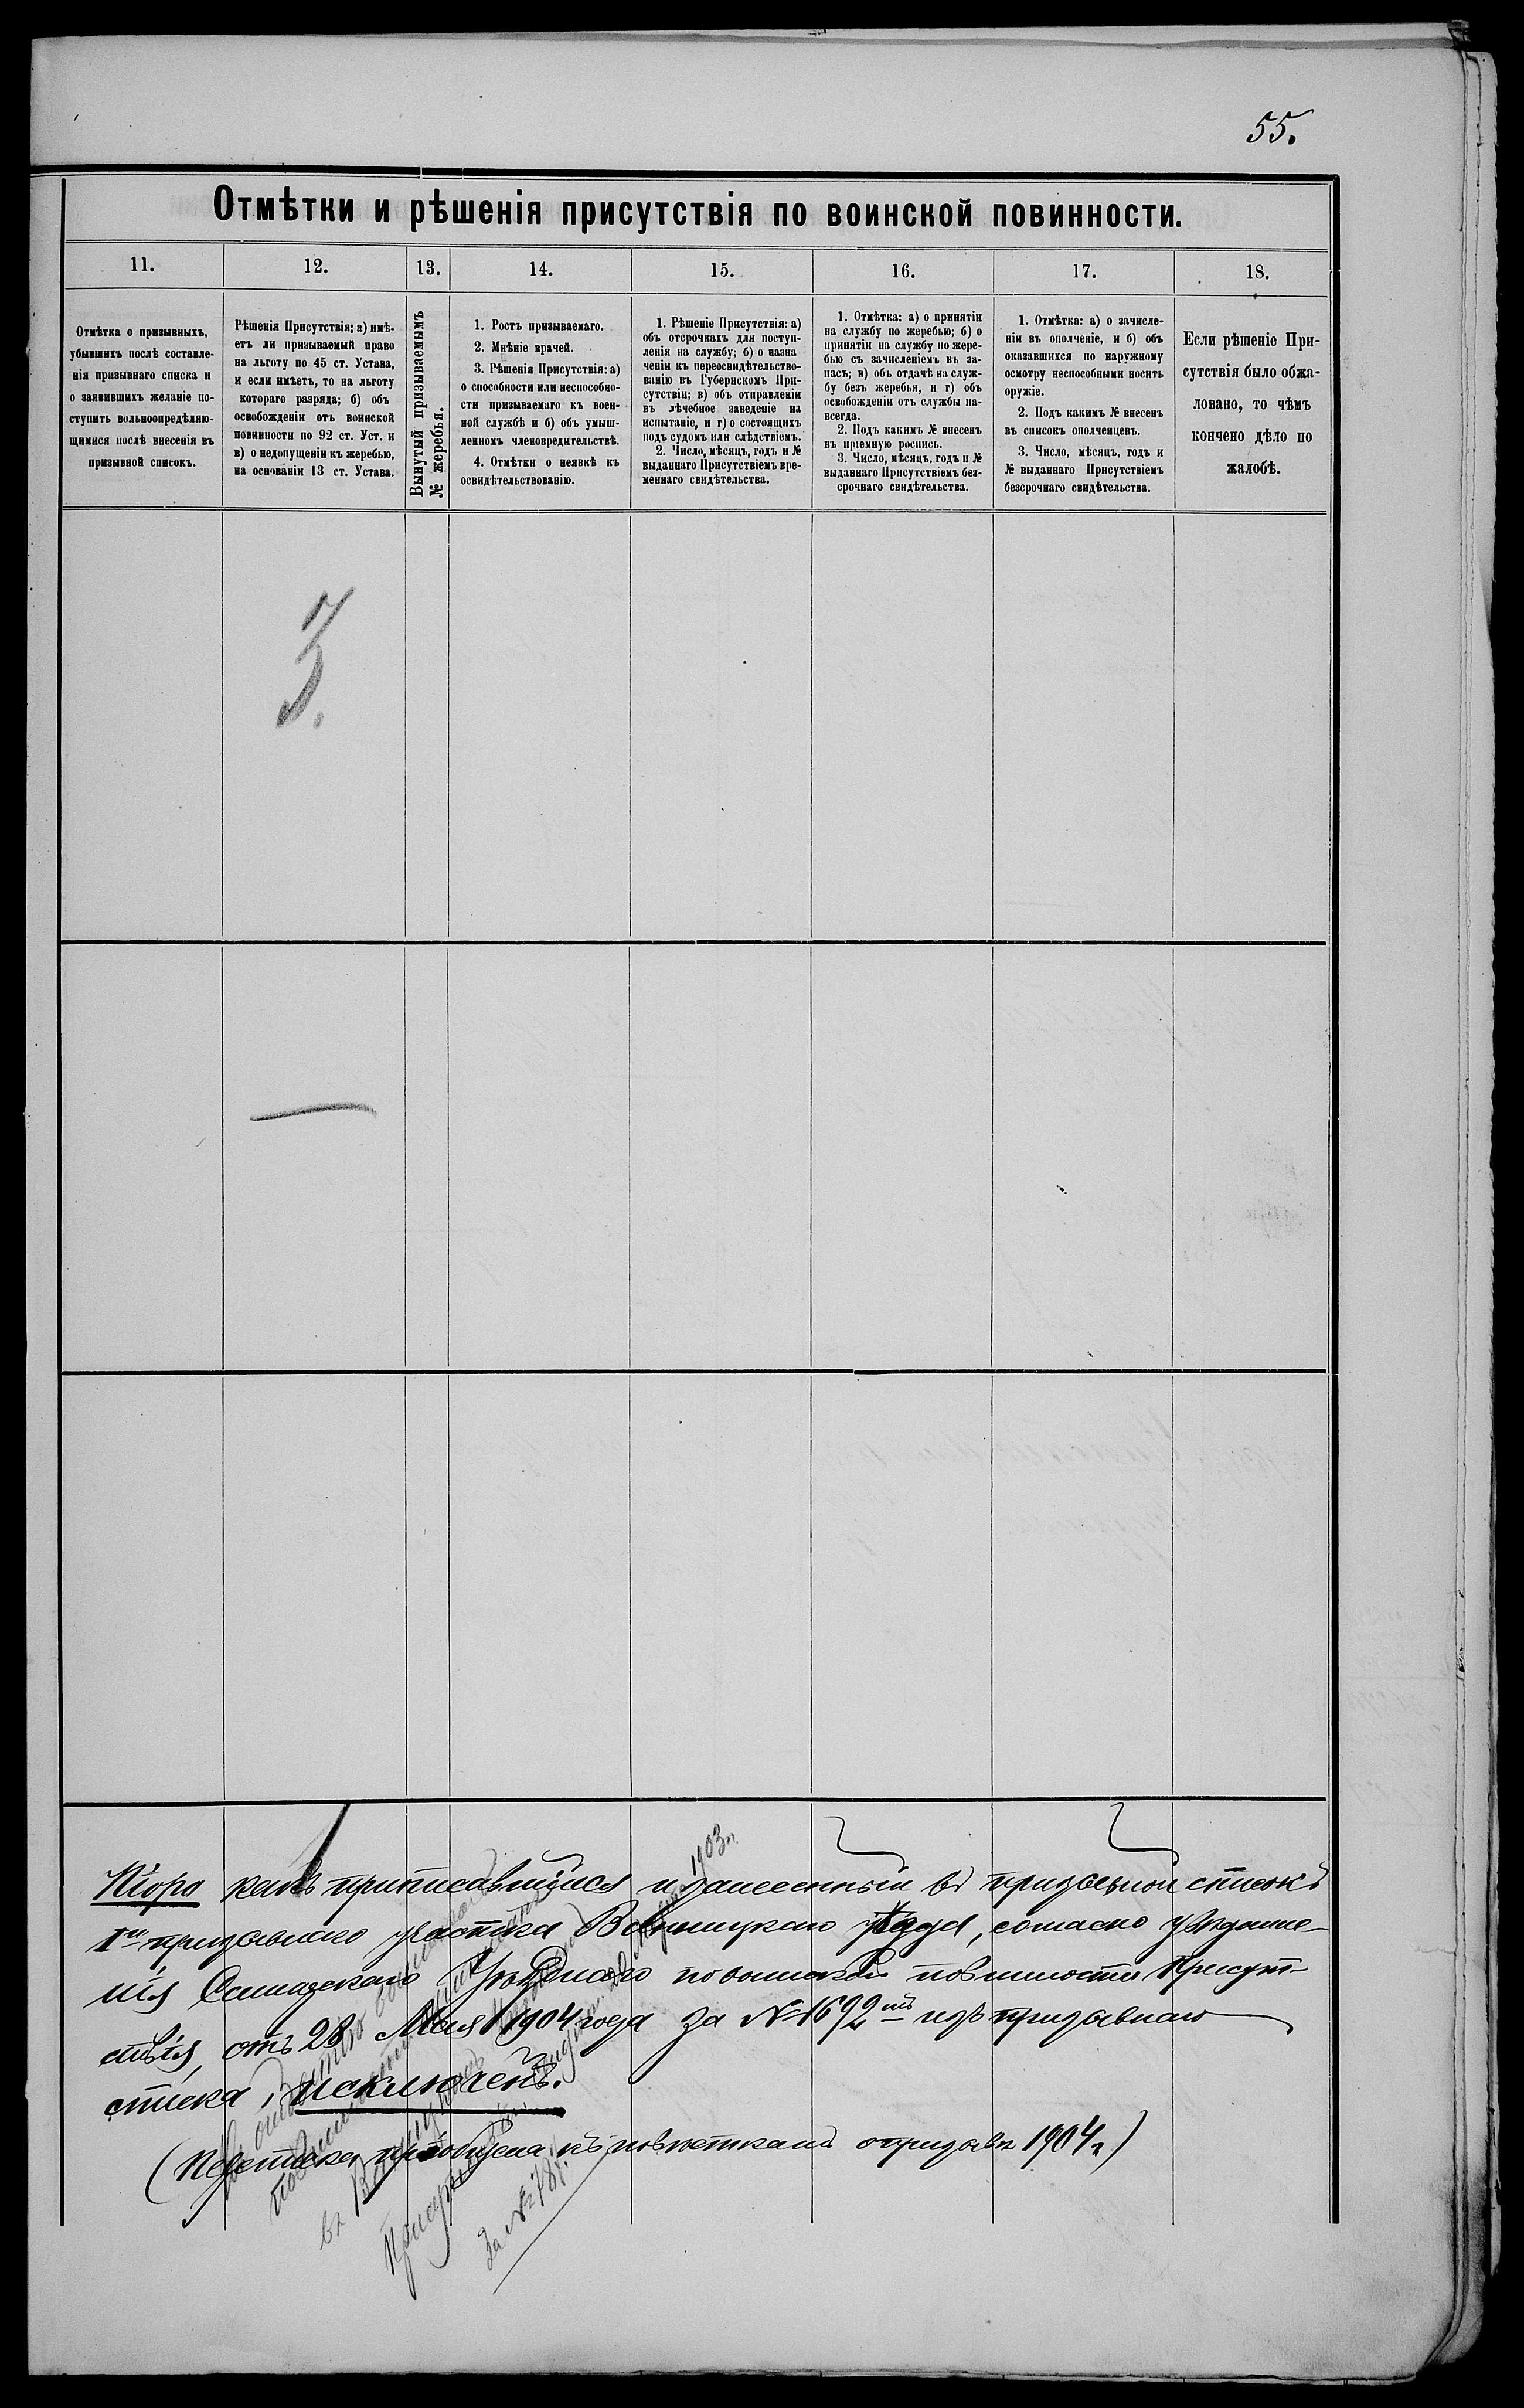 55.
Отмѣтки и рѣшенія присутствія по воинской повинности.
11.
12.
13.
14.
15.
16.
17.
18.
Отмѣтка о призывныхъ,
убывшихъ послѣ составле-
нія призывнаго списка и
о заявившихъ желаніе по-
ступить вольноопредѣляю-
щимися послѣ внесенія въ
призывной списокъ.
Рѣшенія Присутствія: а) имѣ-
етъ ли призываемый право
на льготу по 45 ст. Устава,
и если имѣетъ, то на льготу
котораго разряда; б) объ
освобожденіи отъ воинской
повинности по 92 ст. Уст. и
в) о недопущеніи къ жеребью,
на основаніи 13 ст. Устава.
Вынутый призываемымъ
№ жеребья.
1. Ростъ призываемаго.
2. Мнѣніе врачей.
3. Рѣшенія Присутствія: а)
о способности или неспособно-
сти призываемаго къ воен-
ной службѣ и б) объ умыш-
ленномъ членовредительствѣ.
4. Отмѣтки о неявкѣ къ
освидѣтельствованію.
1. Рѣшеніе Присутствія: а)
объ отсрочкахъ для поступ-
ленія на службу; б) о назна
ченіи къ переосвидѣтельство-
ванію въ Губернскомъ При-
сутствіи; в) объ отправленіи
въ лѣчебное заведеніе на
испытаніе, и г) о состоящихъ
подъ судомъ или слѣдствіемъ.
2. Число, мѣсяцъ, годъ и №
выданнаго Присутствіемъ вре-
меннаго свидѣтельства.
1. Отмѣтка: а) о принятіи
на службу по жеребью; б) о
принятіи на службу по жере-
бью съ зачисленіемъ въ за-
пасъ; в) объ отдачѣ на служ-
бу безъ жеребья, и г) объ
освобожденіи отъ службы на-
всегда.
2. Подъ какимъ № внесенъ
въ пріемную роспись.
3. Число, мѣсяцъ, годъ и №
выданнаго Присутствіемъ без-
срочнаго свидѣтельства.
1. Отмѣтка: а) о зачисле-
ніи въ ополченіе, и б) объ
оказавшихся по наружному
осмотру неспособными носить
оружіе.
2. Подъ какимъ № внесенъ
въ списокъ ополченцевъ.
3. Число, мѣсяцъ, годъ и
№ выданнаго Присутствіемъ
безсрочнаго свидѣтельства.
Если рѣшеніе При-
сутствія было обжа-
ловано, то чѣмъ
кончено дѣло по
жалобѣ.
3.
какъ приписавшійся и занесенный въ призывной списокъ
1го призывнаго участка Винницкаго уѣзда, согласно
Уѣзднаго по воинской повинности Присут-
ствія, отъ 28 Мая 1904 года за № 1692 изъ призывнаго
списка, исключенъ.
пріобщена къ повѣсткамъ о призывѣ 1904 г.)
повинности
въ
Присут
1903 г.
за №